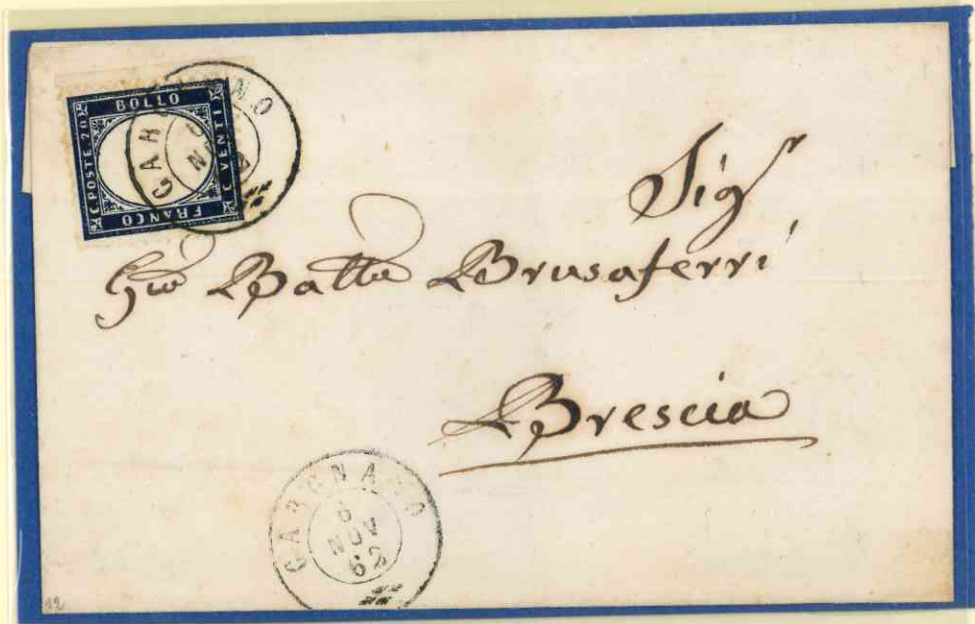 BOLLO
C. POSTE 20
C. VENTI
FRANCO
GARGNANO
NOV
Sigr
Gio Batta Brusaferri
Brescia
GARGNANO
6
NOV
62
12